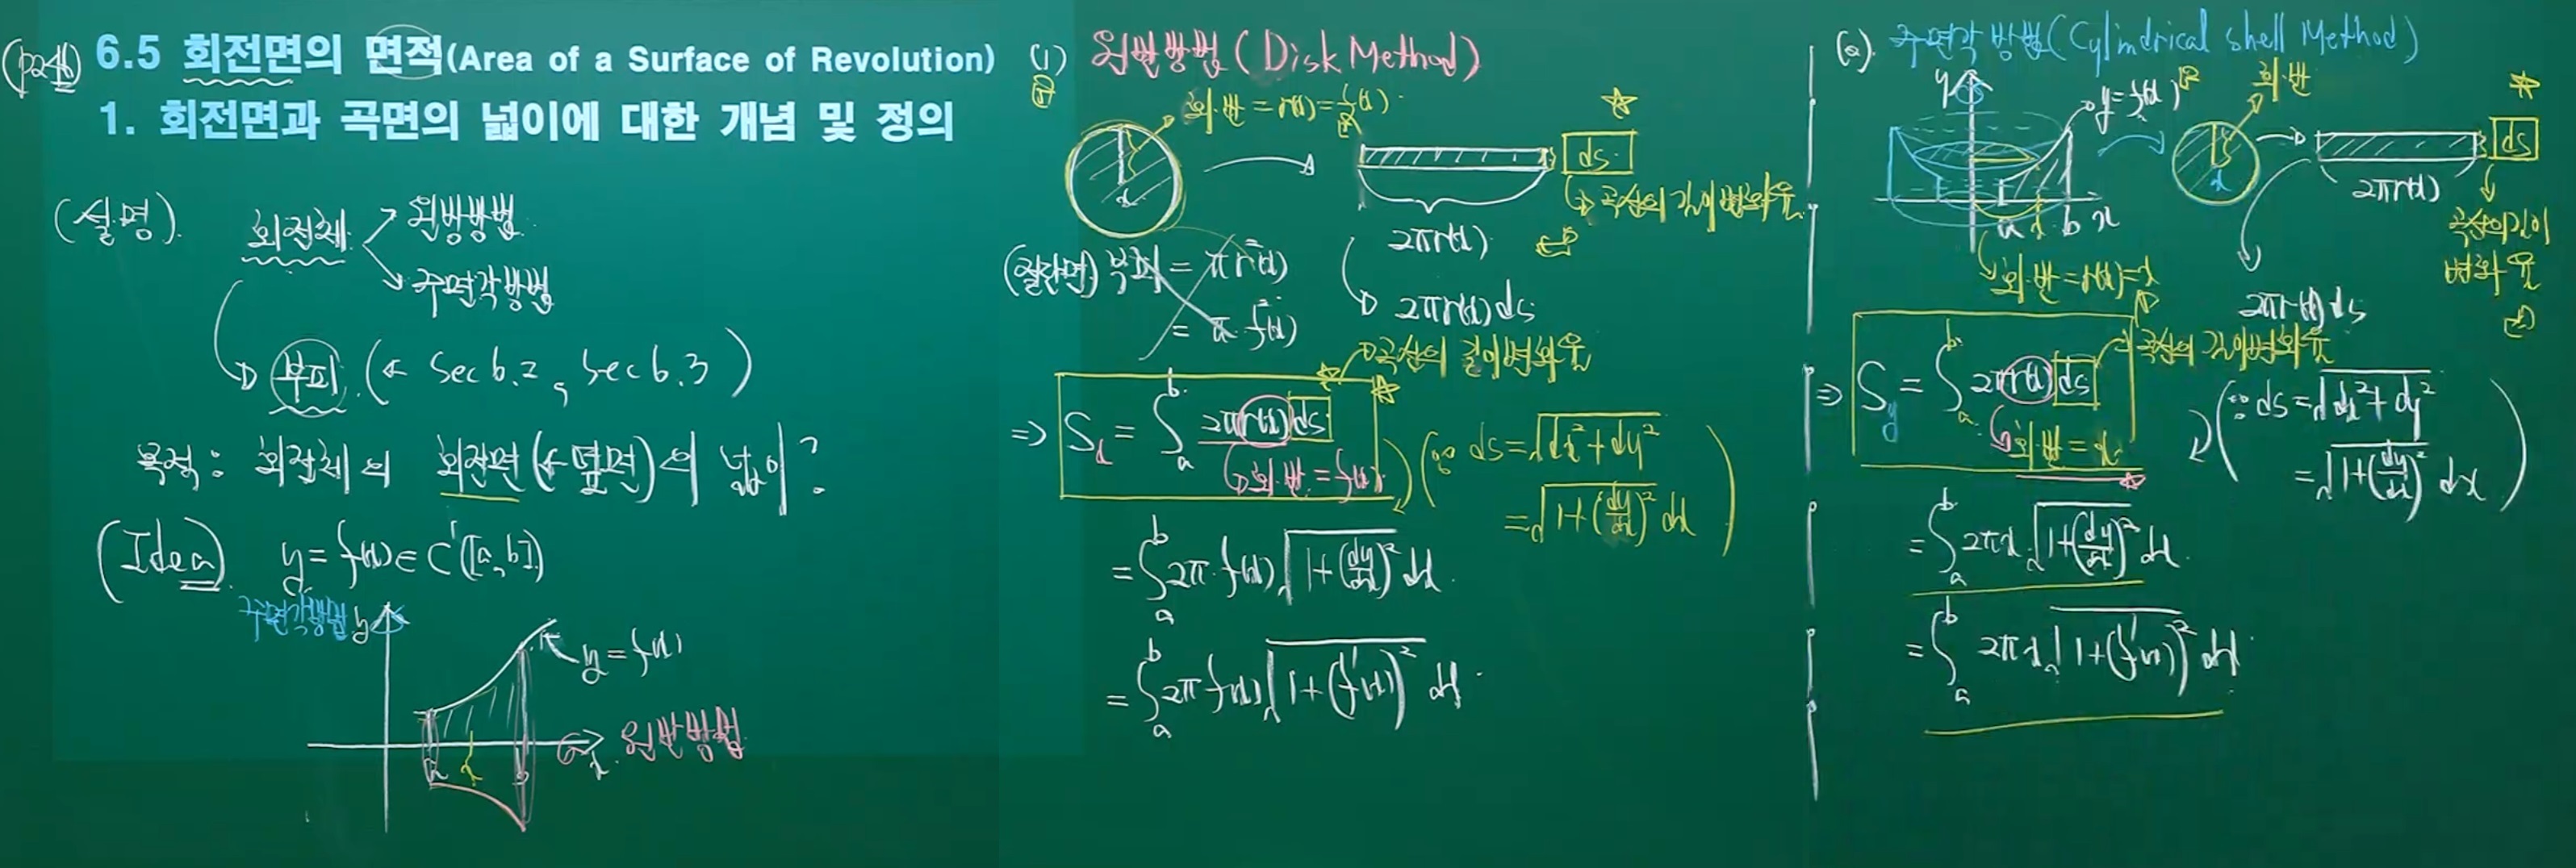 (p246)
6.5 회전면의 면적(Area of a Surface of Revolution)
1. 회전면과 곡면의 넓이에 대한 개념 및 정의
(설명).
회전체
원방방법
주면각방법
부피. (← Sec 6.2, Sec 6.3)
목적: 회전체의 회전면(←옆면)의 넓이?
(Idea). y = f(x) ∈ C'([a,b])
주면각방법 y
y = f(x)
a x b
x. 원반방법
(1) 원반방법 (Disk Method)
회·반 = r(x) = f(x).
ds.
곡선의 길이 변화율.
2πr(x).
(절단면) 부피 = πr²(x)
= π f²(x)
2πr(x) ds
곡선의 길이변화율
⇒ Sx = ∫ₐᵇ 2πr(x) ds
회·반 = f(x).
(∵ ds = √(dx² + dy²)
= √(1+(dy/dx)²) dx)
= ∫ₐᵇ 2π·f(x) √(1+(dy/dx)²) dx.
= ∫ₐᵇ 2π f(x) √(1+(f'(x))²) dx.
(2). 주면각 방법 (Cylindrical shell Method)
y
y = f(x)
회·반
x
ds
2πr(x)
a x b x
곡선의 길이
변화율
회·반 = r(x) = x
2πr(x) ds
곡선의 길이변화율
⇒ Sy = ∫ₐᵇ 2πr(x) ds
회·반 = x
(∵ ds = √(dx² + dy²)
= √(1+(dy/dx)²) dx)
= ∫ₐᵇ 2πx √(1+(dy/dx)²) dx.
= ∫ₐᵇ 2πx √(1+(f'(x))²) dx.